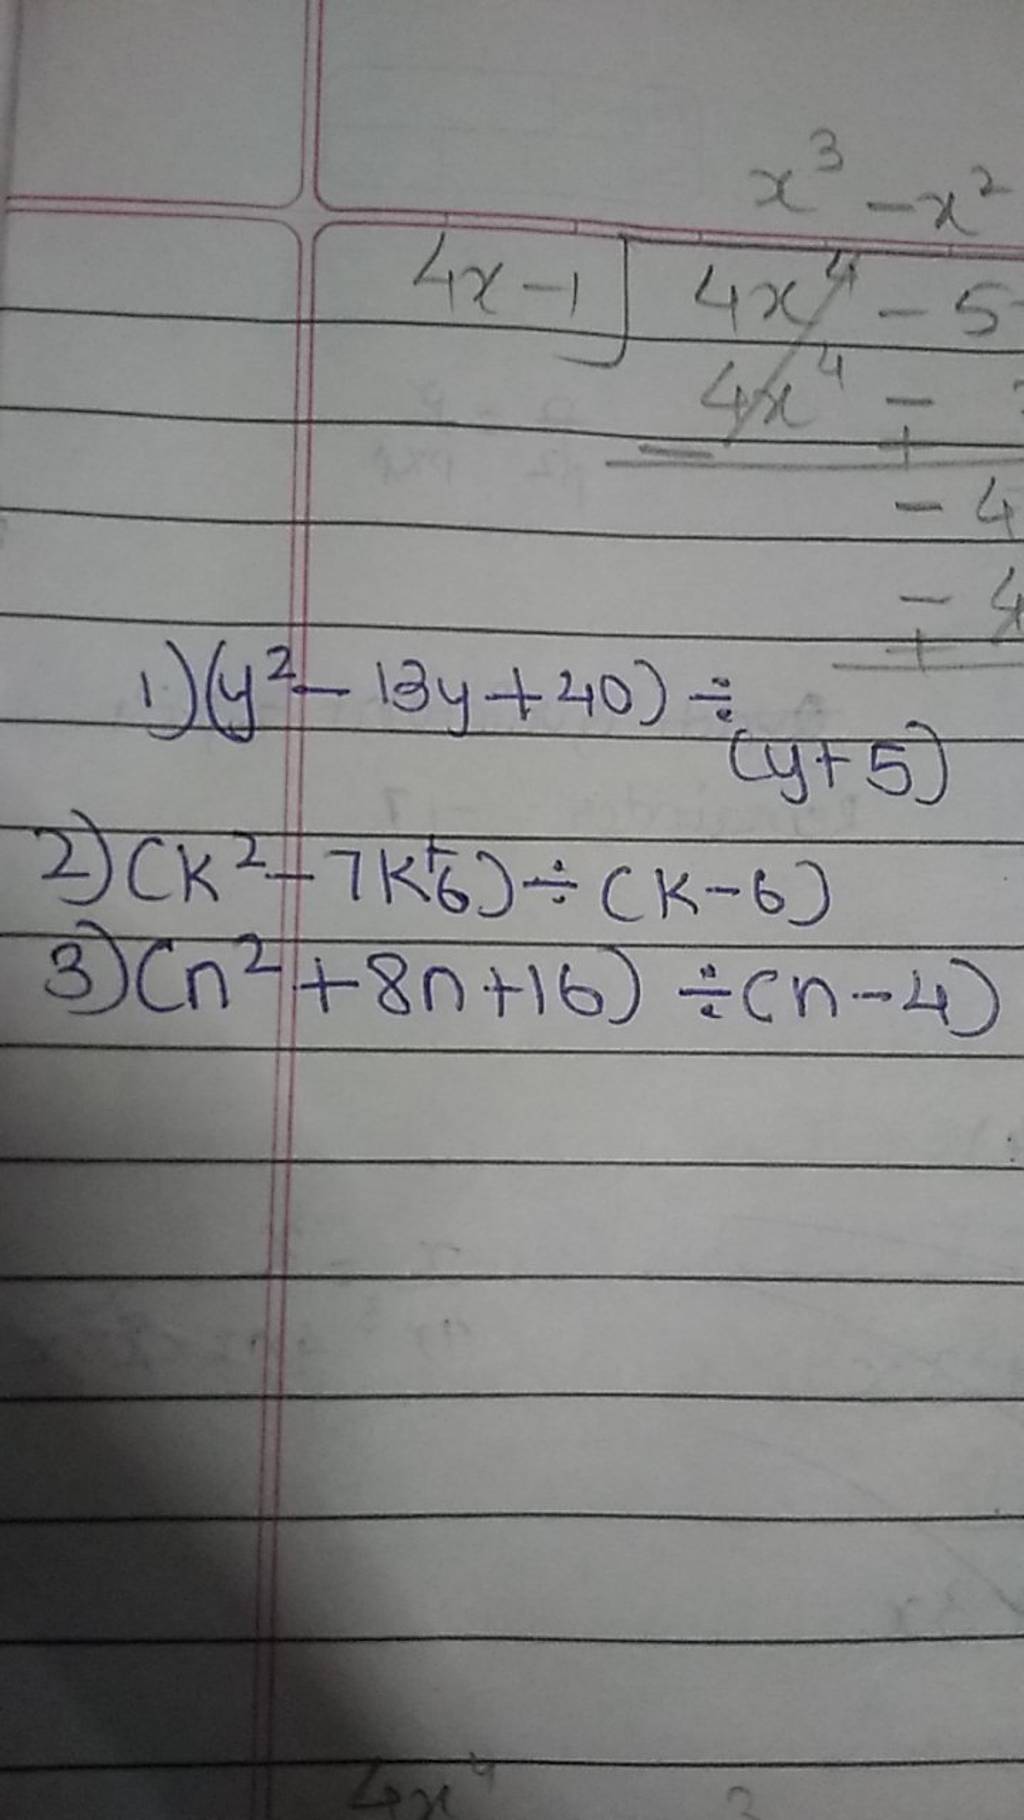 x³ - x²
4x - 1 4x⁴ - 5
4x⁴ -
+
- 4
- 4
+
1) (y² - 13y + 40) ÷
(y + 5)
2) (k² - 7k + 6) ÷ (k - 6)
3) (n² + 8n + 16) ÷ (n - 4)
4x⁴